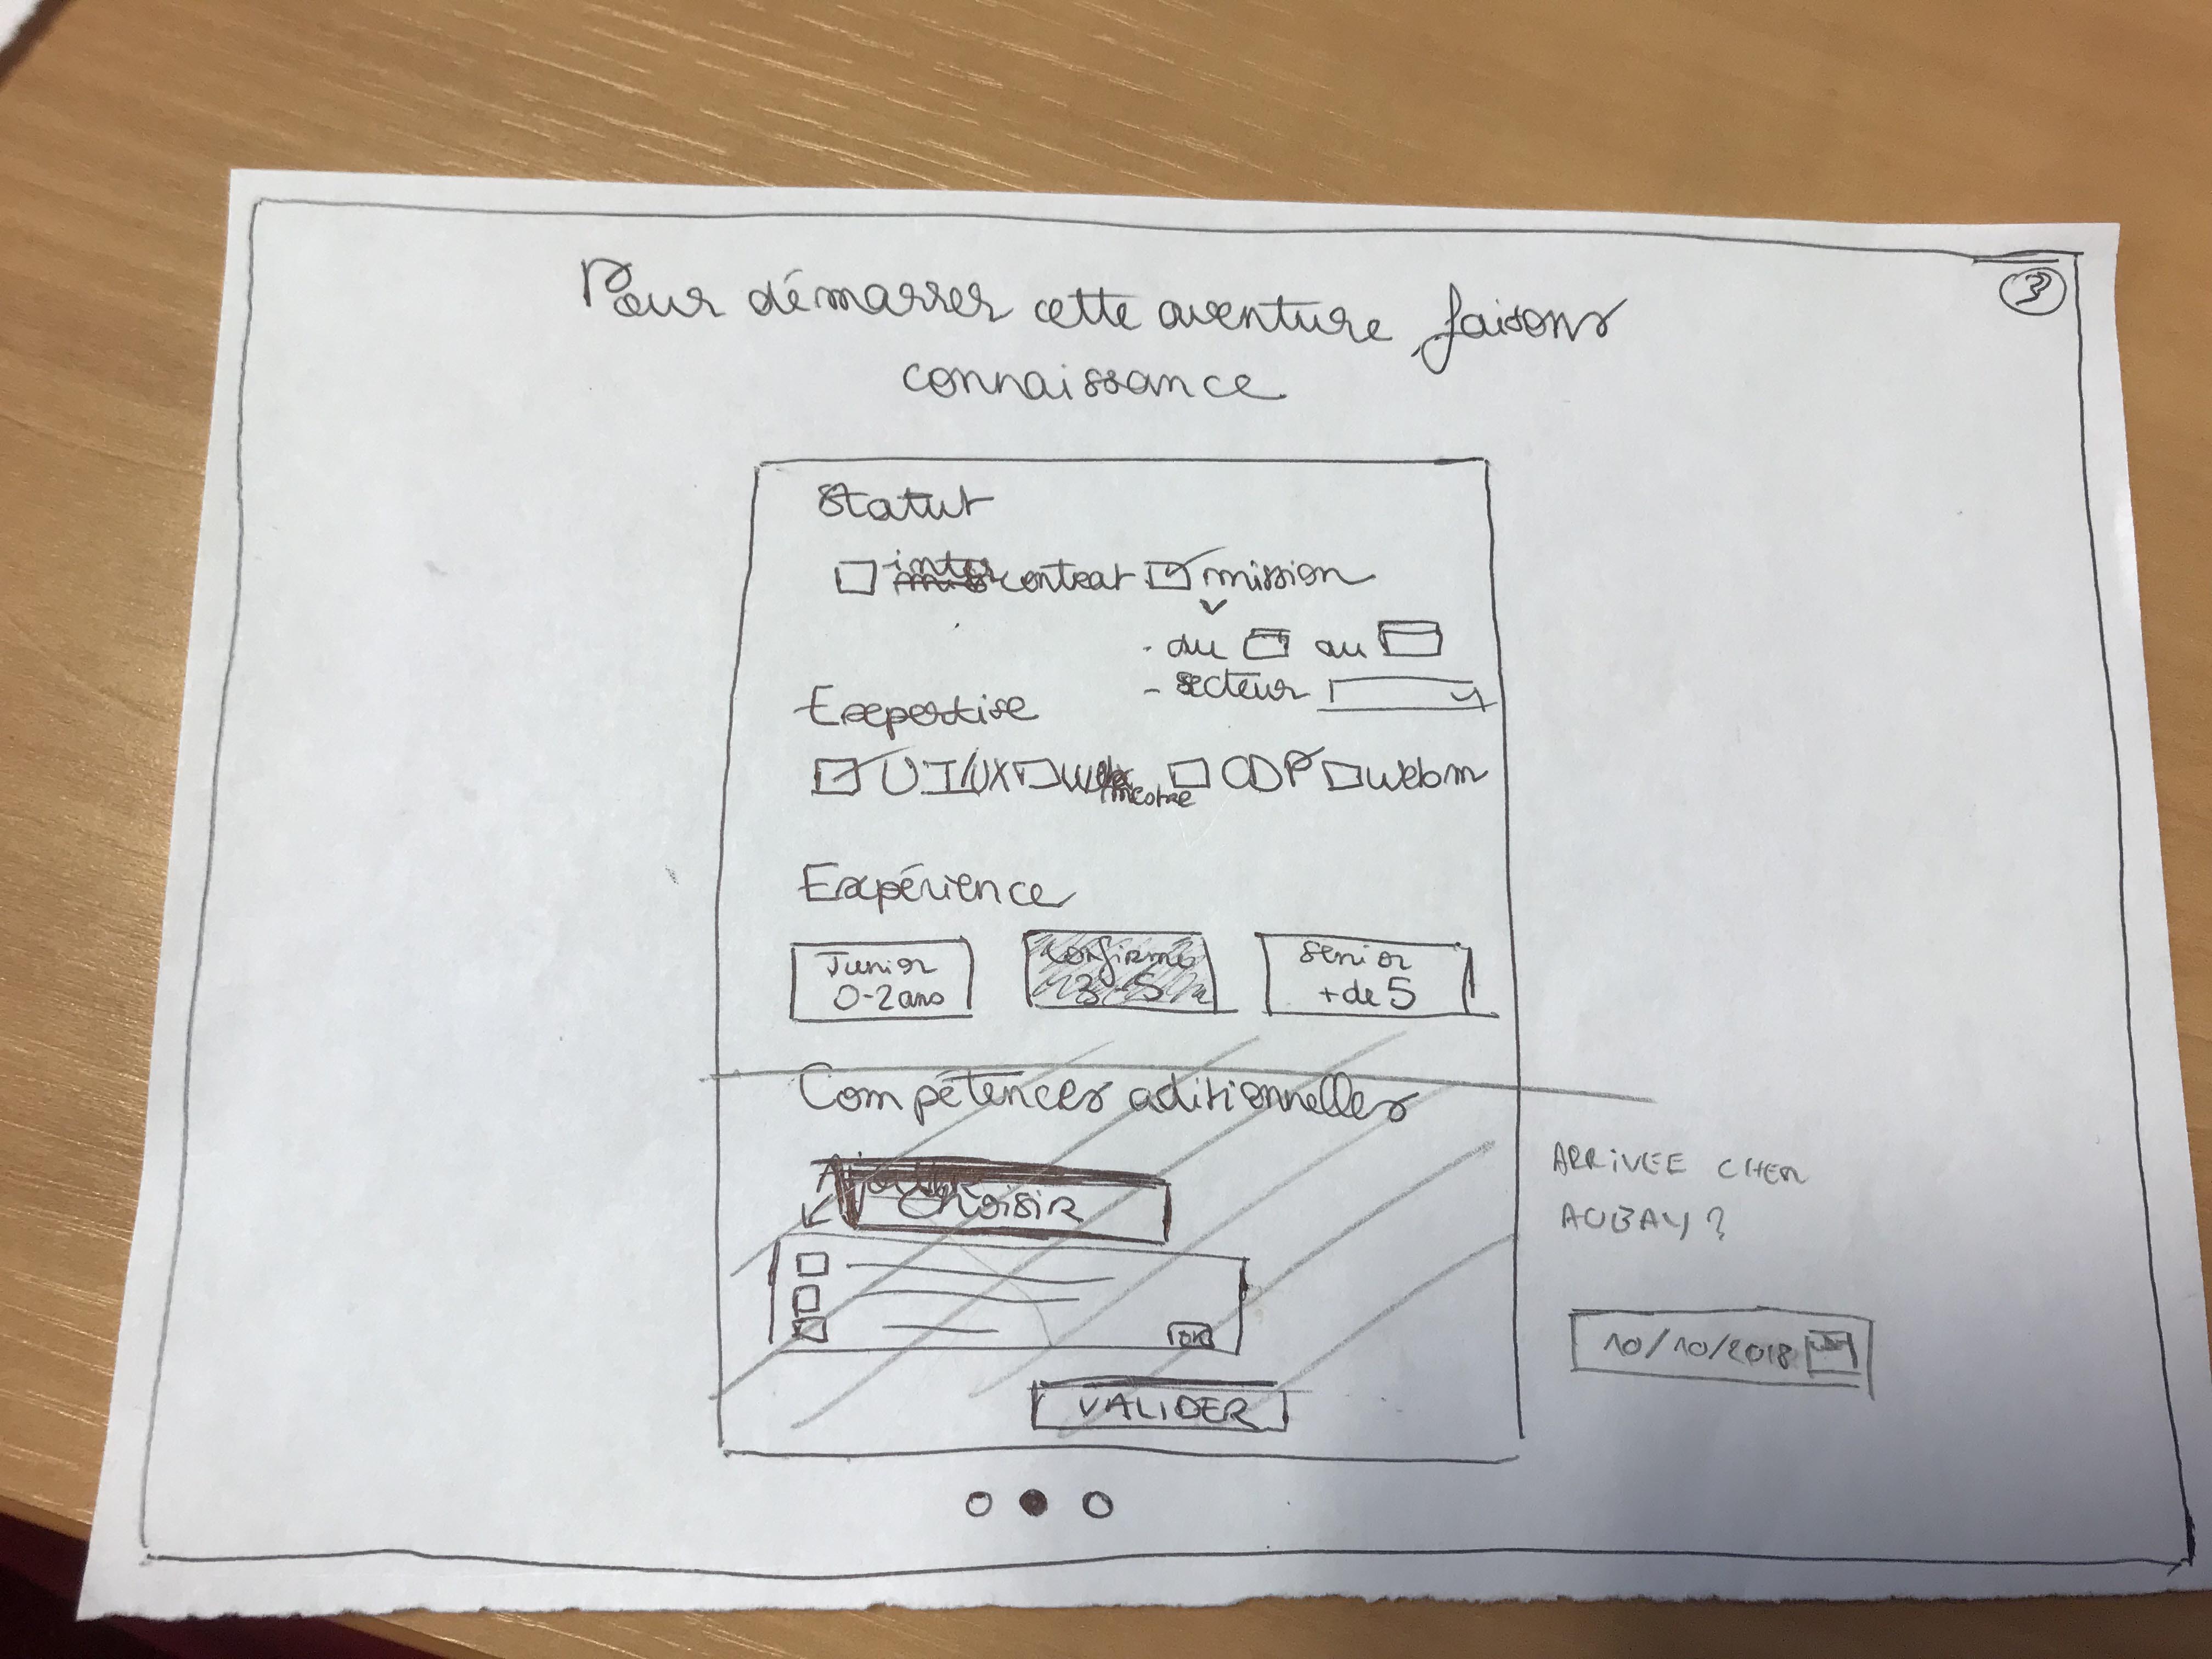 3
Pour démarrer cette aventure, faisons
connaissance
Statut
inter contrat mission
- du au
- secteur
Expertise
UI/UX CDP webm
Expérience
Junior
0-2 ans
Confirmé
3-5
senior
+ de 5
Compétences aditionnelles
Ajouter
Choisir
OK
VALIDER
ARRIVEE CHEZ
AUBAY ?
10/10/2018